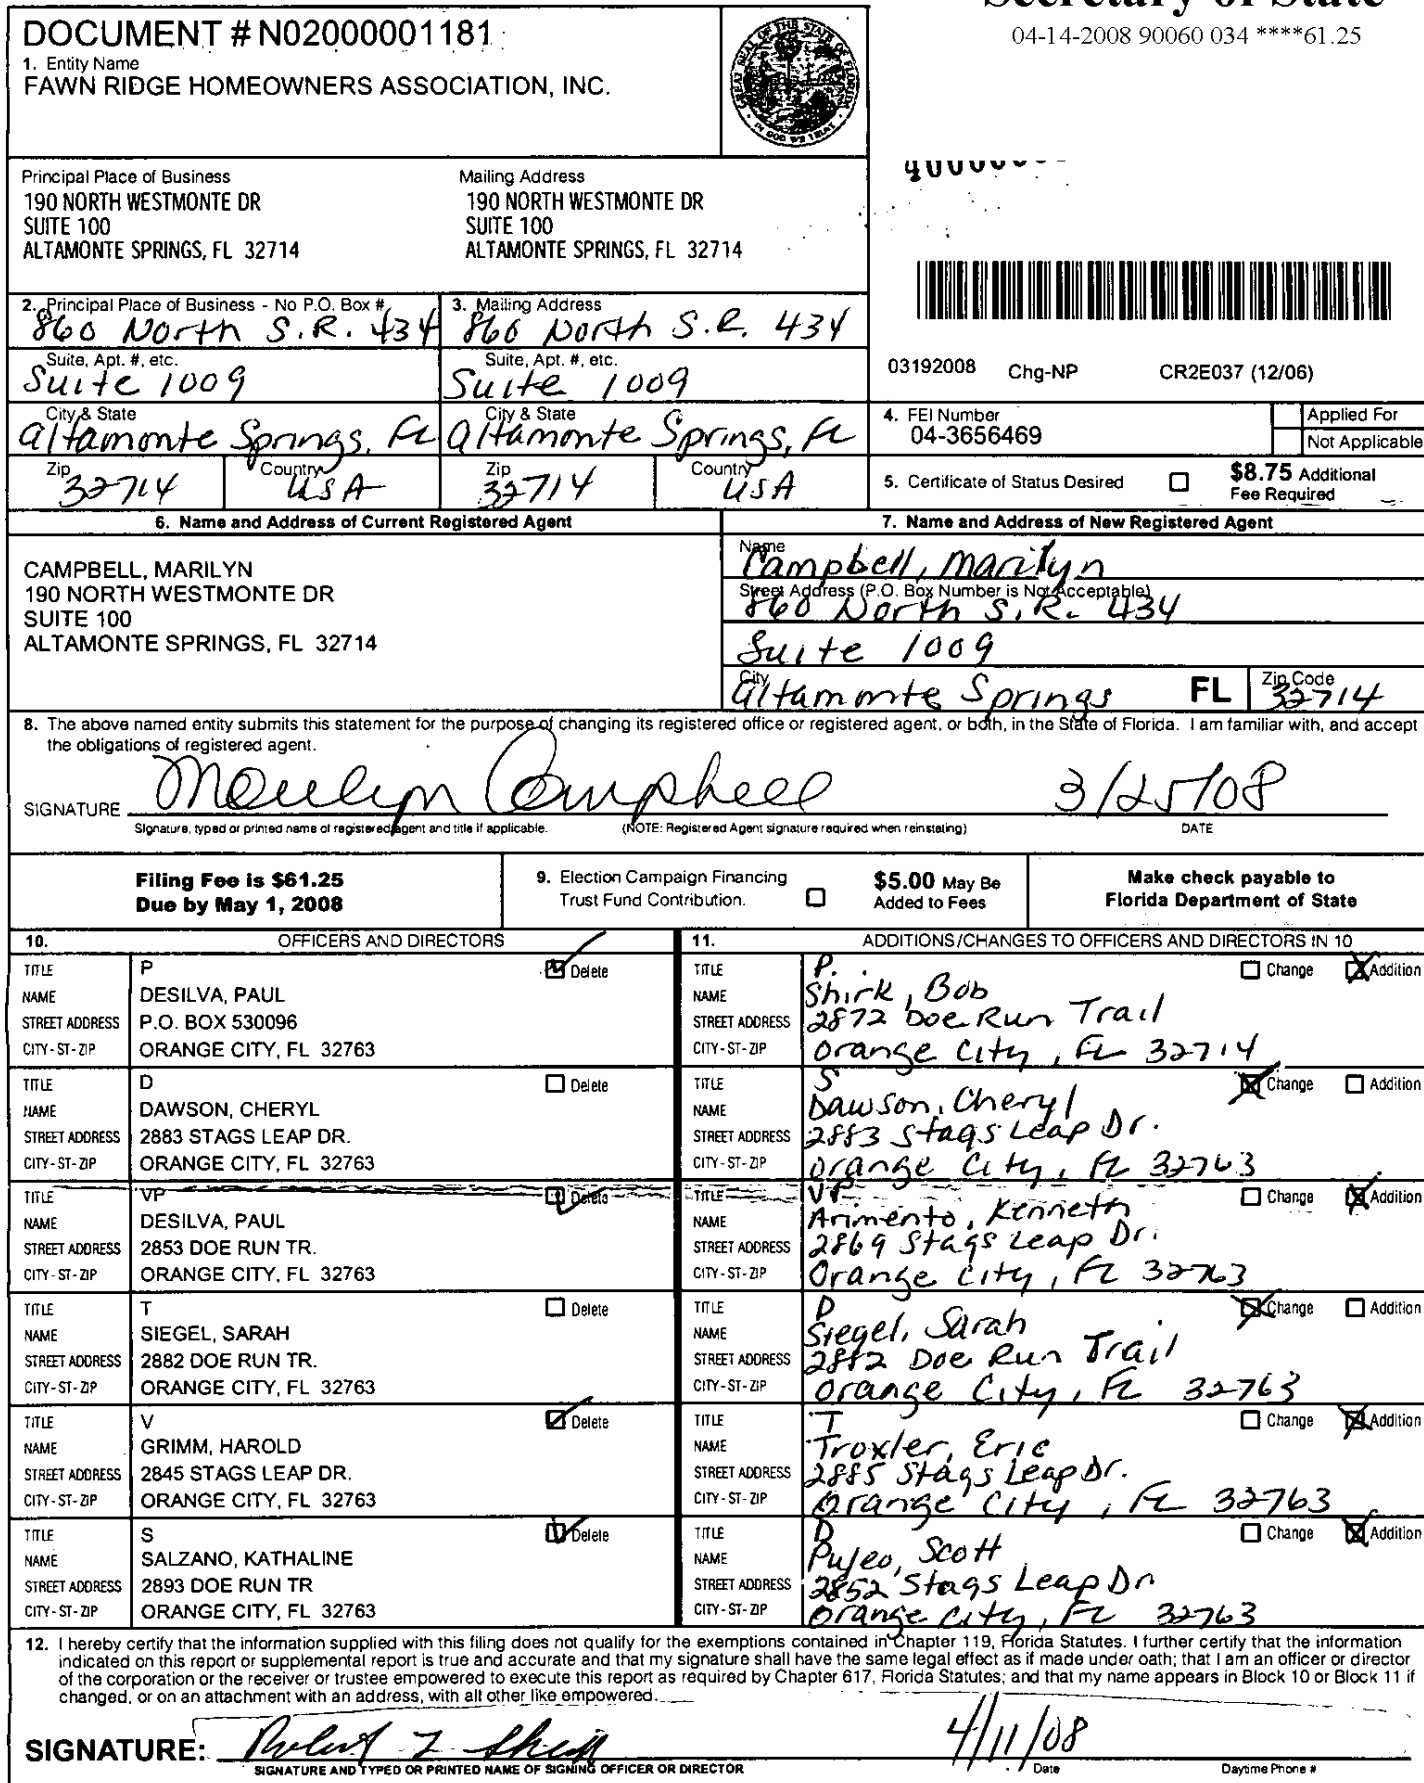 Secretary of State
04-14-2008 90060 034 ****61.25
DOCUMENT # N02000001181
1. Entity Name
FAWN RIDGE HOMEOWNERS ASSOCIATION, INC.
GREAT SEAL OF THE STATE OF FLORIDA
IN GOD WE TRUST
Principal Place of Business
190 NORTH WESTMONTE DR
SUITE 100
ALTAMONTE SPRINGS, FL 32714
Mailing Address
190 NORTH WESTMONTE DR
SUITE 100
ALTAMONTE SPRINGS, FL 32714
2. Principal Place of Business - No P.O. Box #
860 North S.R. 434
3. Mailing Address
860 North S.R. 434
Suite, Apt. #, etc.
Suite 1009
Suite, Apt. #, etc.
Suite 1009
City & State
Altamonte Springs, FL
City & State
Altamonte Springs, FL
Zip
32714
Country
USA
Zip
32714
Country
USA
03192008 Chg-NP CR2E037 (12/06)
4. FEI Number
04-3656469
Applied For
Not Applicable
5. Certificate of Status Desired
$8.75 Additional
Fee Required
6. Name and Address of Current Registered Agent
CAMPBELL, MARILYN
190 NORTH WESTMONTE DR
SUITE 100
ALTAMONTE SPRINGS, FL 32714
7. Name and Address of New Registered Agent
Name
Campbell, Marilyn
Street Address (P.O. Box Number is Not Acceptable)
860 North S.R. 434
Suite 1009
City
Altamonte Springs
FL
Zip Code
32714
8. The above named entity submits this statement for the purpose of changing its registered office or registered agent, or both, in the State of Florida. I am familiar with, and accept
the obligations of registered agent.
SIGNATURE Marilyn Campbell 3/25/08
Signature, typed or printed name of registered agent and title if applicable. (NOTE: Registered Agent signature required when reinstating) DATE
Filing Fee is $61.25
Due by May 1, 2008
9. Election Campaign Financing
Trust Fund Contribution.
$5.00 May Be
Added to Fees
Make check payable to
Florida Department of State
10. OFFICERS AND DIRECTORS
11. ADDITIONS/CHANGES TO OFFICERS AND DIRECTORS IN 10
TITLE P Delete
NAME DESILVA, PAUL
STREET ADDRESS P.O. BOX 530096
CITY-ST-ZIP ORANGE CITY, FL 32763
TITLE P. Change Addition
NAME Shirk, Bob
STREET ADDRESS 2872 Doe Run Trail
CITY-ST-ZIP Orange City, FL 32714
TITLE D Delete
NAME DAWSON, CHERYL
STREET ADDRESS 2883 STAGS LEAP DR.
CITY-ST-ZIP ORANGE CITY, FL 32763
TITLE S Change Addition
NAME Dawson, Cheryl
STREET ADDRESS 2883 Stags Leap Dr.
CITY-ST-ZIP Orange City, FL 32763
TITLE VP Delete
NAME DESILVA, PAUL
STREET ADDRESS 2853 DOE RUN TR.
CITY-ST-ZIP ORANGE CITY, FL 32763
TITLE VP Change Addition
NAME Arimento, Kenneth
STREET ADDRESS 2869 Stags Leap Dr.
CITY-ST-ZIP Orange City, FL 32763
TITLE T Delete
NAME SIEGEL, SARAH
STREET ADDRESS 2882 DOE RUN TR.
CITY-ST-ZIP ORANGE CITY, FL 32763
TITLE D Change Addition
NAME Siegel, Sarah
STREET ADDRESS 2882 Doe Run Trail
CITY-ST-ZIP Orange City, FL 32763
TITLE V Delete
NAME GRIMM, HAROLD
STREET ADDRESS 2845 STAGS LEAP DR.
CITY-ST-ZIP ORANGE CITY, FL 32763
TITLE T Change Addition
NAME Troxler, Eric
STREET ADDRESS 2885 Stags Leap Dr.
CITY-ST-ZIP Orange City, FL 32763
TITLE S Delete
NAME SALZANO, KATHALINE
STREET ADDRESS 2893 DOE RUN TR
CITY-ST-ZIP ORANGE CITY, FL 32763
TITLE D Change Addition
NAME Pujeo, Scott
STREET ADDRESS 2852 Stags Leap Dr
CITY-ST-ZIP Orange City, FL 32763
12. I hereby certify that the information supplied with this filing does not qualify for the exemptions contained in Chapter 119, Florida Statutes. I further certify that the information
indicated on this report or supplemental report is true and accurate and that my signature shall have the same legal effect as if made under oath; that I am an officer or director
of the corporation or the receiver or trustee empowered to execute this report as required by Chapter 617, Florida Statutes; and that my name appears in Block 10 or Block 11 if
changed, or on an attachment with an address, with all other like empowered.
SIGNATURE: Robert 4/11/08
SIGNATURE AND TYPED OR PRINTED NAME OF SIGNING OFFICER OR DIRECTOR Date Daytime Phone #